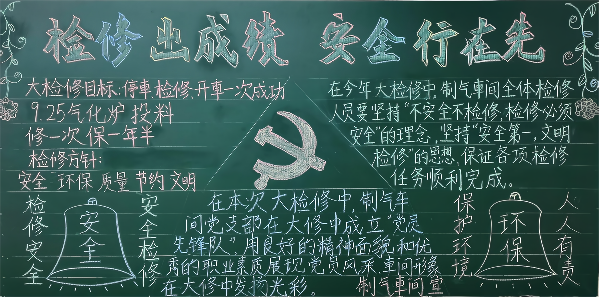 检修出成绩 安全行在先
大检修目标:停車检修、开車一次成功
9.25气化炉投料
修一次保一年半
检修方针:
安全 环保 质量 节约 文明
在今年大检修中,制气車间全体检修
人员要坚持"不安全不检修,检修必须
安全"的理念,坚持"安全第一,文明
检修"的思想、保证各项检修
任务顺利完成。
检修安全
安全
安全检修
在本次大检修中,制气车
间党支部在大修中成立"党员
先锋队",用良好的精神面貌和优
秀的职业素质展现党员风采,車间形象
在大修中发扬光彩。
制气車间宣
保护环境
环保
人人有责